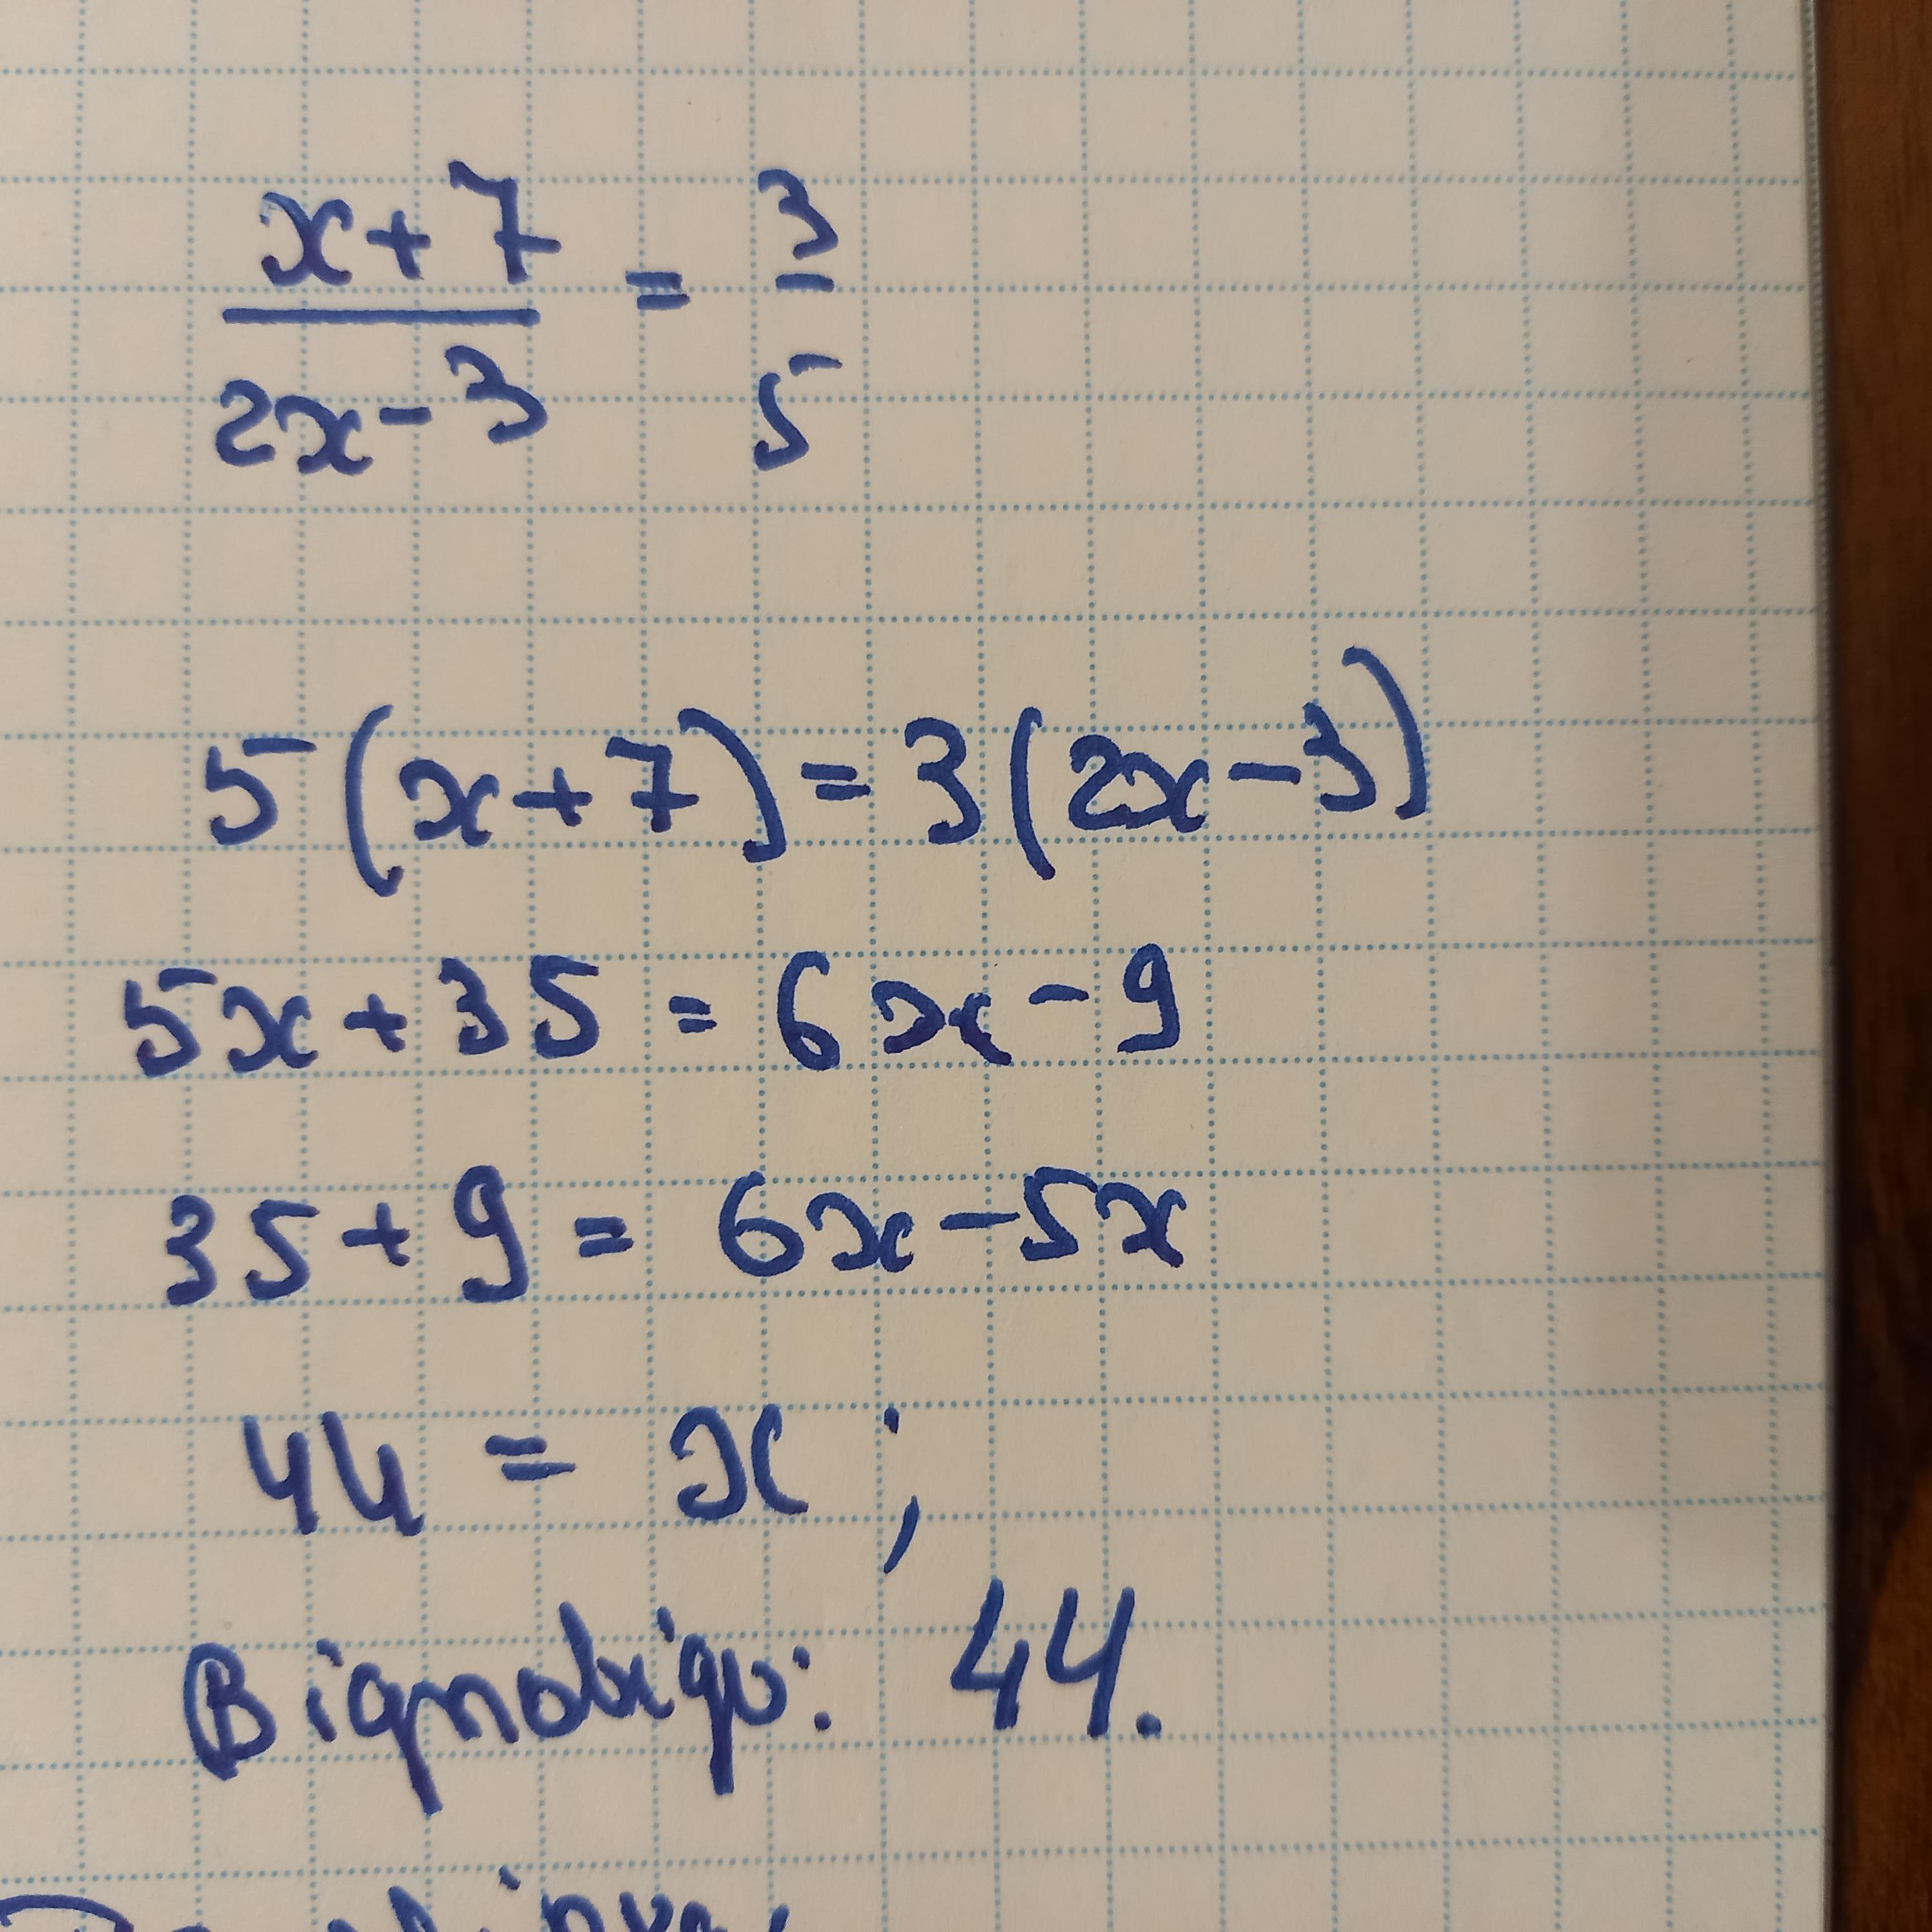 x+7 / 2x-3 = 3/5
5(x+7)=3(2x-3)
5x+35=6x-9
35+9=6x-5x
44=x;
Відповідь: 44.